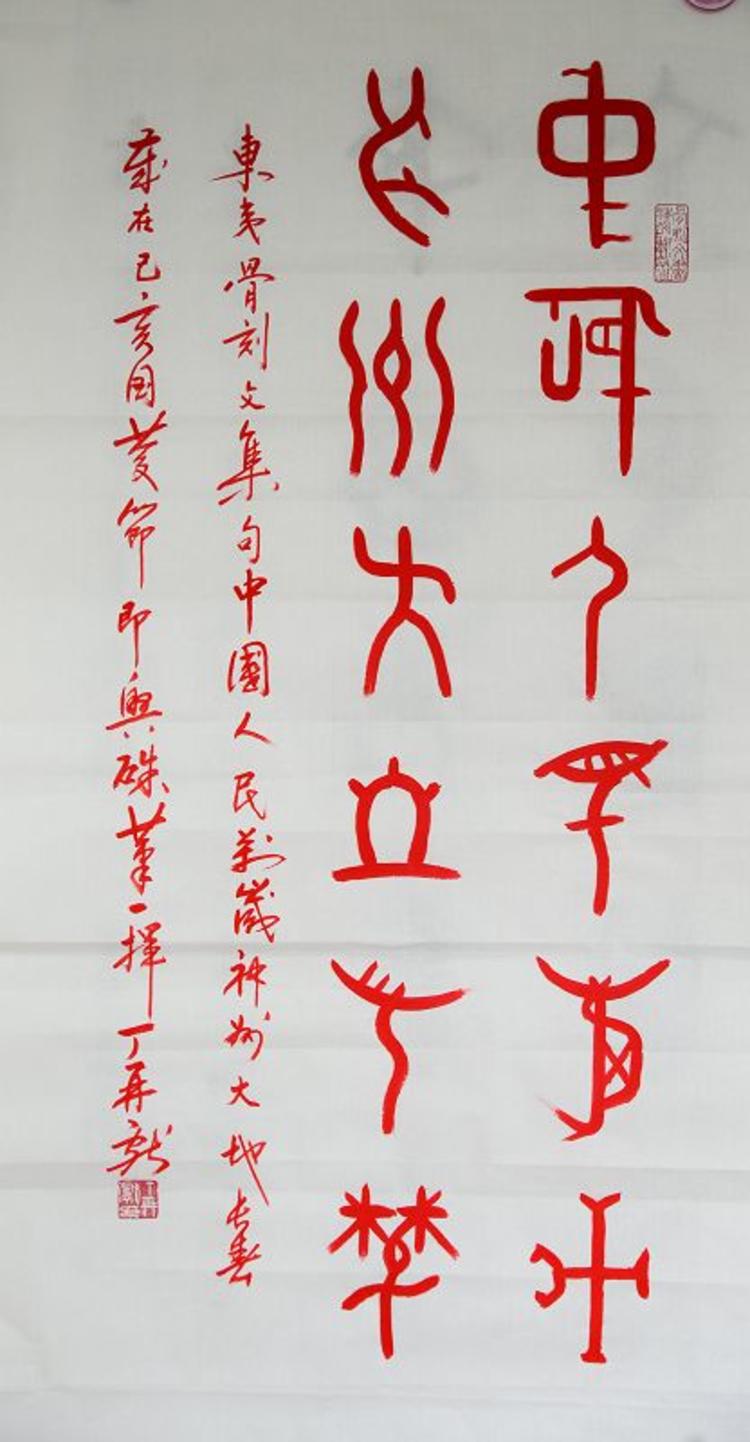 中國人民萬歲
神州大地長春
東夷骨刻文集句中國人民萬歲神州大地長春
歲在己亥国慶節即興硃筆一揮丁再獻